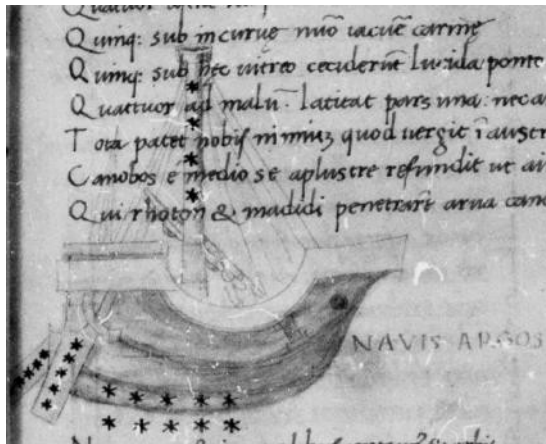 Quinq: sub incurue nuo iacuē carine
Quinq: sub hec uitreo ceciderūt lucida ponto
Quattuor ad malū· latitat pars una: neca
Tota patet nobis nimiuȝ quod uergit ī austr
Canobos ē medio se aplustre refundit ut ai
Qui rhoton & madidi penetrare arua cano
NAVIS ARGOS